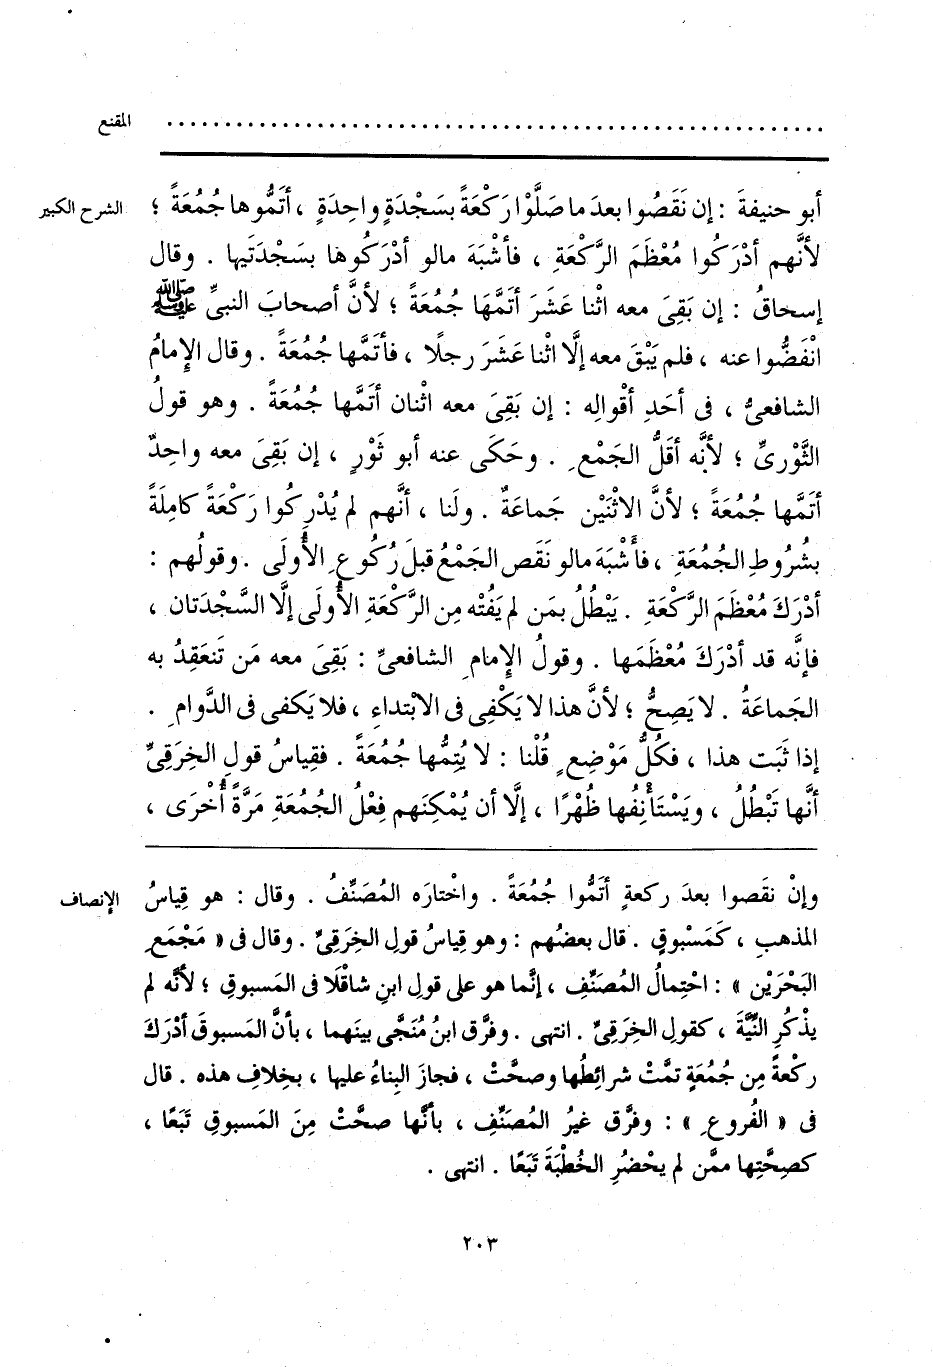 المقنع ........................................................
الشرح الكبير أبو حنيفةَ : إن نَقَصُوا بعدَ ما صَلَّوْا رَكْعَةً بسَجْدَةٍ واحِدَةٍ ، أتَمُّوها جُمُعَةً ؛
لأنَّهم أدْرَكُوا مُعْظَمَ الرَّكْعَةِ ، فأشْبَهَ مالو أدْرَكُوها بسَجْدَتَيها . وقال
إسحاقُ : إن بَقِىَ معه اثْنا عَشَرَ أتَمَّهَا جُمُعَةً ؛ لأنَّ أصحابَ النبىِّ ﷺ
انْفَضُّوا عنه ، فلم يَبْقَ معه إلَّا اثْنا عَشَرَ رجلًا ، فأتَمَّها جُمُعَةً . وقال الإِمامُ
الشافعىُّ ، فى أحَدِ أقْوالِه : إن بَقِىَ معه اثْنان أتَمَّها جُمُعَةً . وهو قولُ
الثَّوْرىِّ ؛ لأنَّه أقَلُّ الجَمْعِ . وحَكَى عنه أبو ثَوْرٍ ، إن بَقِىَ معه واحِدٌ
أتَمَّها جُمُعَةً ؛ لأنَّ الاثْنَيْن جَماعَةٌ . ولَنا ، أنَّهم لم يُدْرِكُوا رَكْعَةً كامِلَةً
بشُرُوطِ الجُمُعَةِ ، فأَشْبَهَ مالو نَقَص الجَمْعُ قبلَ رُكُوعِ الأُولَى . وقولُهم :
أدْرَكَ مُعْظَمَ الرَّكْعَةِ . يَبْطُلُ بمَن لم يَفُتْه مِن الرَّكْعَةِ الأُولَى إلَّا السَّجْدَتان ،
فإنَّه قد أدْرَكَ مُعْظَمَها . وقولُ الإِمامِ الشافعىِّ : بَقِىَ معه مَن تَنعَقِدُ به
الجَماعَةُ . لا يَصِحُّ ؛ لأنَّ هذا لا يَكْفِى فى الابْتداءِ ، فلا يَكفى فى الدَّوامِ .
إذا ثَبَت هذا ، فكُلُّ مَوْضِعٍ قُلْنا : لا يُتِمُّها جُمُعَةً . فقِياسُ قولِ الخِرَقِىِّ
أنَّها تَبْطُلُ ، ويَسْتَأْنِفُها ظُهْرًا ، إلَّا أن يُمْكِنَهم فِعْلُ الجُمُعَةِ مَرَّةً أُخْرَى ،
الإنصاف وإنْ نقَصوا بعدَ ركعةٍ أتَمُّوا جُمُعَةً . واخْتارَه المُصَنِّفُ . وقال : هو قِياسُ
المذهبِ ، كَمَسْبوقٍ . قال بعضُهم : وهو قِياسُ قولِ الخِرَقِىِّ . وقال فى « مَجْمَعِ
البَحْرَيْن » : احْتِمالُ المُصَنِّفِ ، إنَّما هو على قولِ ابنِ شاقْلَا فى المَسبوقِ ؛ لأنَّه لم
يذْكُرِ النِّيَّةَ ، كقولِ الخِرَقِىِّ . انتهى . وفرَّق ابنُ مُنَجَّى بينَهما ، بأنَّ المَسبوقَ أدْرَكَ
ركْعةً مِن جُمُعَةٍ تمَّتْ شرائطُها وصحَّتْ ، فجازَ البِناءُ عليها ، بخِلافِ هذه . قال
فى « الفُروعِ » : وفرَّق غيرُ المُصَنِّفِ ، بأنَّها صحَّتْ مِنَ المَسبوقِ تَبَعًا ،
كصِحَّتِها ممَّن لم يحْضُرِ الخُطْبَةَ تَبَعًا . انتهى .
٢٠٣